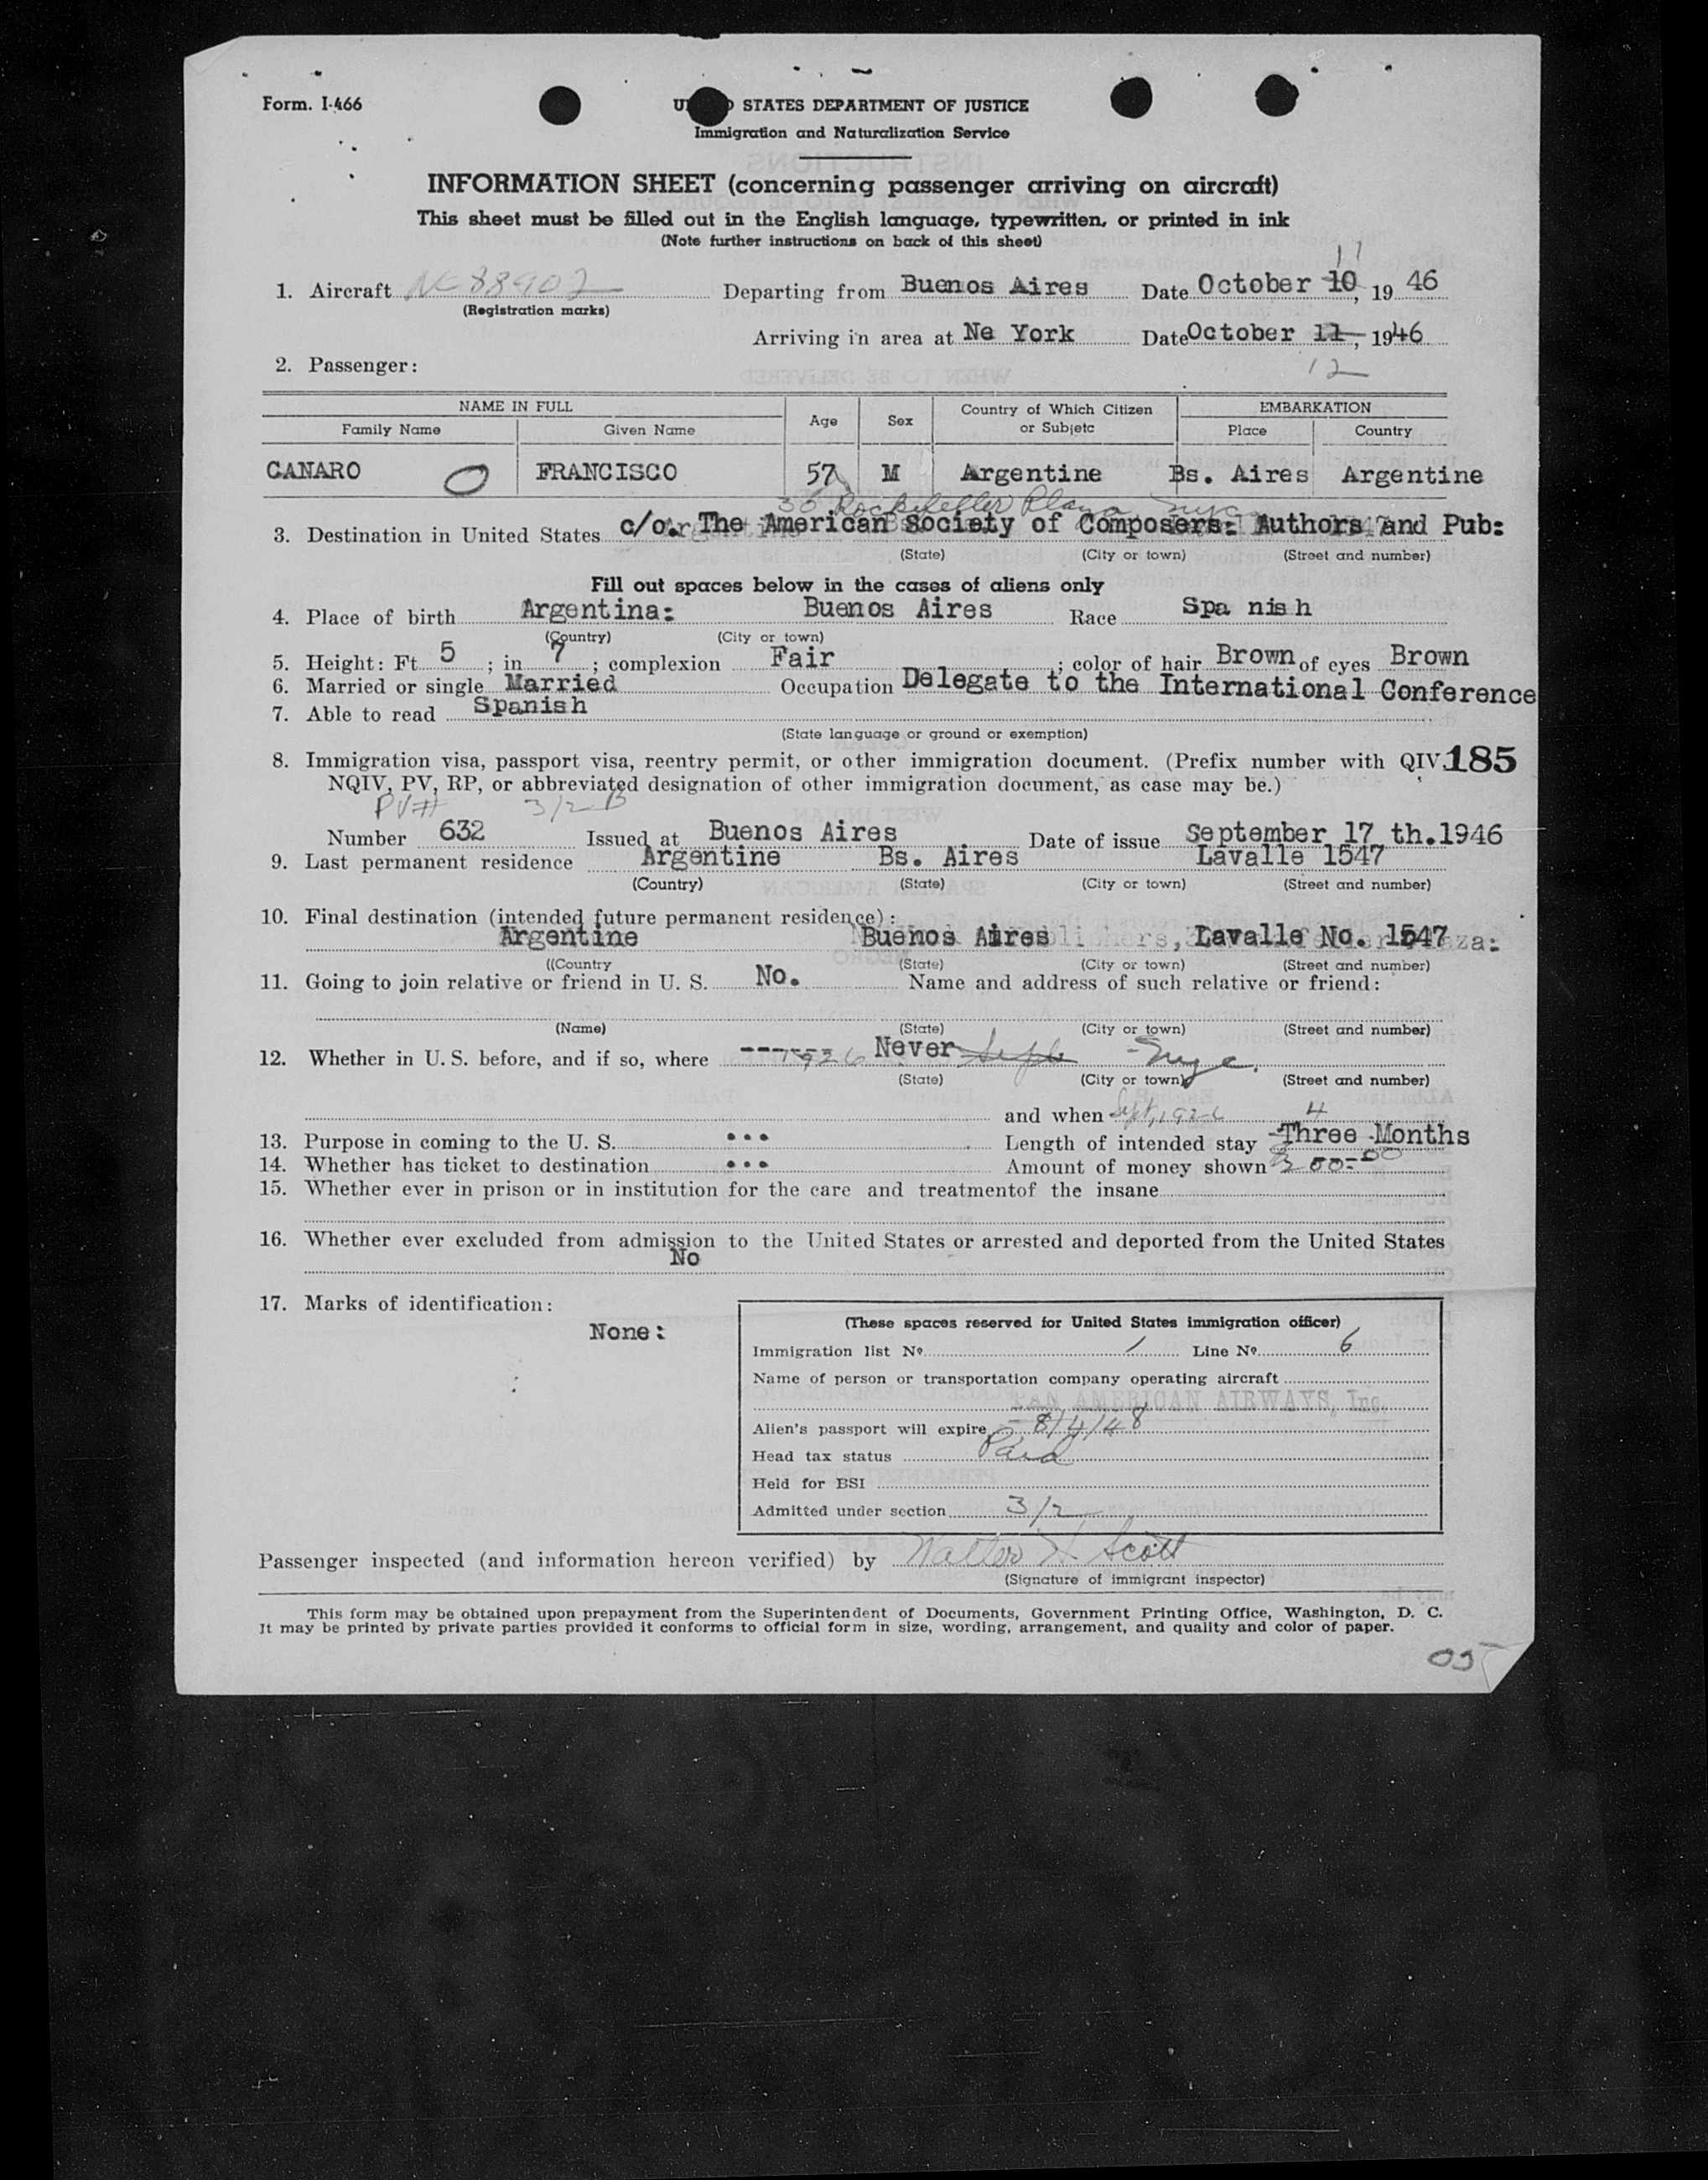 Form. I-466
STATES DEPARTMENT OF JUSTICE
Immigration and Naturalization Service
INFORMATION SHEET (concerning passenger arriving on aircraft)
This sheet must be filled out in the English language, typewritten, or printed in ink
(Note further instructions on back of this sheet)
11
1. Aircraft NC 88902 Departing from Buenos Aires Date October 10, 19 46
(Registration marks)
Arriving in area at Ne York Date October 11, 1946
12
2. Passenger:
NAME IN FULL Age Sex Country of Which Citizen or Subjetc EMBARKATION
Family Name Given Name Place Country
CANARO O FRANCISCO 57 M Argentine Bs. Aires Argentine
30 Rockefeller Plaza nyc
3. Destination in United States c/o. The American Society of Composers: Authors and Pub:
(State) (City or town) (Street and number)
Fill out spaces below in the cases of aliens only
4. Place of birth Argentina: Buenos Aires Race Spa nis h
(Country) (City or town)
5. Height: Ft 5 ; in 7 ; complexion Fair ; color of hair Brown of eyes Brown
6. Married or single Married Occupation Delegate to the International Conference
7. Able to read Spanish
(State language or ground or exemption)
8. Immigration visa, passport visa, reentry permit, or other immigration document. (Prefix number with QIV 185
NQIV, PV, RP, or abbreviated designation of other immigration document, as case may be.)
PV# 3/2 B
Number 632 Issued at Buenos Aires Date of issue September 17 th.1946
9. Last permanent residence Argentine Bs. Aires Lavalle 1547
(Country) (State) (City or town) (Street and number)
10. Final destination (intended future permanent residence):
Argentine Buenos Aires Lavalle No. 1547
((Country (State) (City or town) (Street and number)
11. Going to join relative or friend in U. S. No. Name and address of such relative or friend:
(Name) (State) (City or town) (Street and number)
12. Whether in U. S. before, and if so, where ------- 1926 Never Sept - nyc.
(State) (City or town) (Street and number)
and when Sept, 1926 4
13. Purpose in coming to the U. S. ... Length of intended stay -Three Months
14. Whether has ticket to destination ... Amount of money shown 200.00
15. Whether ever in prison or in institution for the care and treatmentof the insane
16. Whether ever excluded from admission to the United States or arrested and deported from the United States
No
17. Marks of identification:
None:
(These spaces reserved for United States immigration officer)
Immigration list Nº 1 Line Nº 6
Name of person or transportation company operating aircraft
PAN AMERICAN AIRWAYS, Inc.
Alien's passport will expire 8/4/48
Head tax status Paid
Held for BSI
Admitted under section 3/2
Passenger inspected (and information hereon verified) by Walter H Scott
(Signature of immigrant inspector)
This form may be obtained upon prepayment from the Superintendent of Documents, Government Printing Office, Washington, D. C.
It may be printed by private parties provided it conforms to official form in size, wording, arrangement, and quality and color of paper.